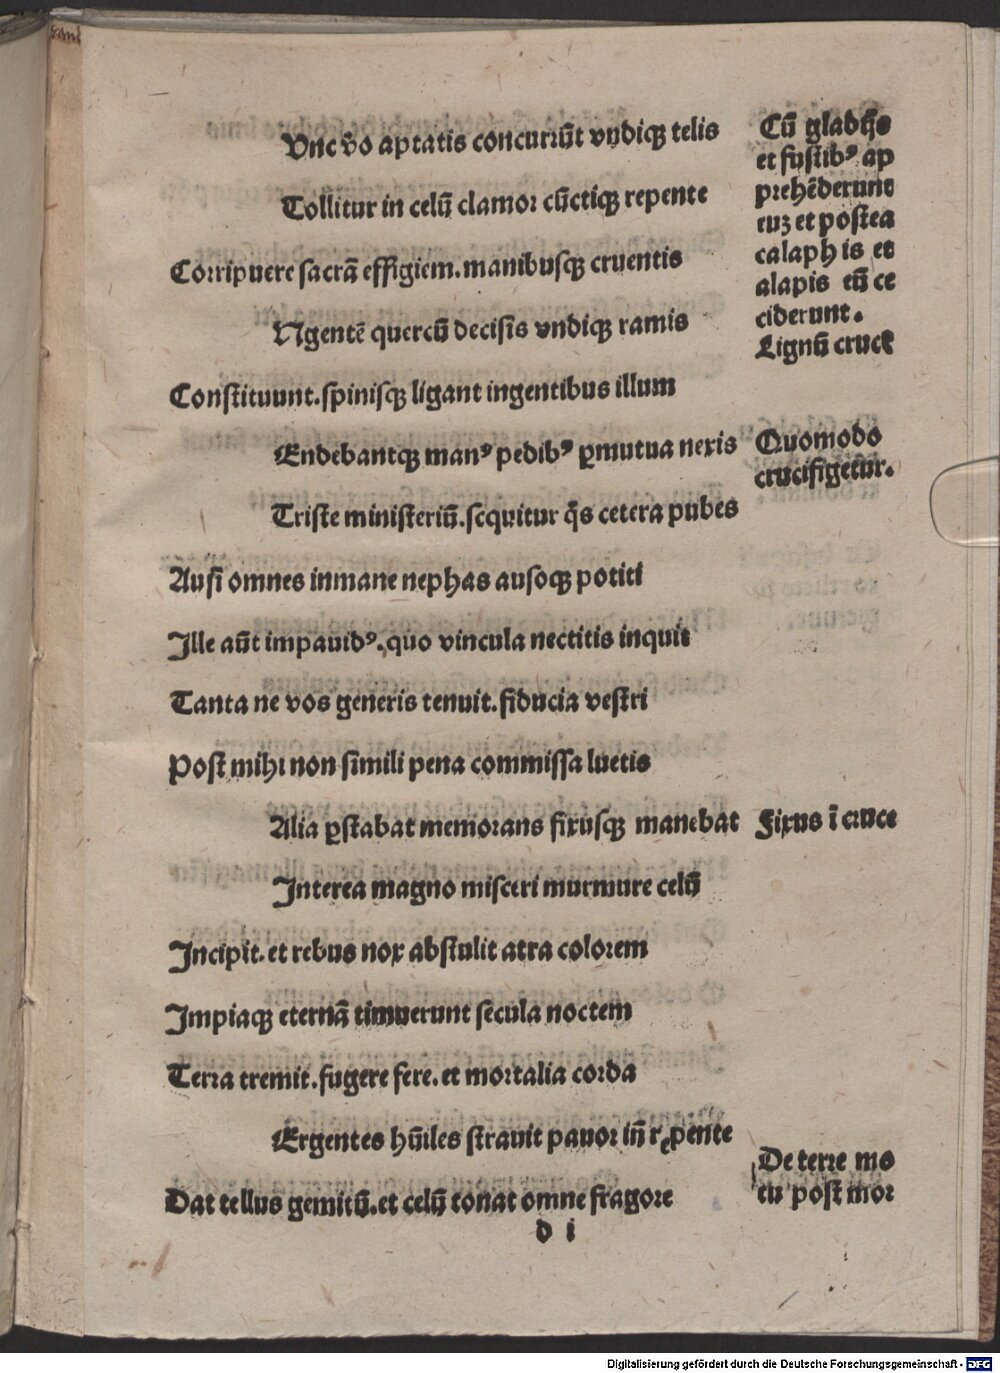 Vnc vo aptatis concurrūt vndiqꝫ telis
Tollitur in celū clamor cūctiqꝫ repente
Corripuere sacrā effigiem.manibusqꝫ cruentis
Ngentē quercū decisis vndiqꝫ ramis
Constituunt.spinisqꝫ ligant ingentibus illum
Endebantqꝫ manꝰ pedibꝰ ꝑmutua nexis
Triste ministeriū.sequitur q̄s cetera pubes
Ausi omnes inmane nephas ausoqꝫ potiti
Ille aūt impauidꝰ.quo vincula nectitis inquit
Tanta ne vos generis tenuit.fiducia vestri
Post mihi non simili pena commissa luetis
Alia ꝑstabat memorans fixusqꝫ manebat
Interea magno misceri murmure celū
Incipit.et rebus nox abstulit atra colorem
Impiaqꝫ eternā timuerunt secula noctem
Terra tremit.fugere fere.et mortalia corda
Ergentes hūiles strauit pauor iñ rꝑente
Dat tellus gemitū.et celū tonat omne fragore
d i
Cū gladijs
et fustibꝰ ap
prehēderunt
euꝫ et postea
calaphis et
alapis eū ce
ciderunt.
Lignū crucꝭ
Quomodo
crucifigetur.
Fixus ī cruce
De terre mo
tu post mor
Digitalisierung gefördert durch die Deutsche Forschungsgemeinschaft - DFG